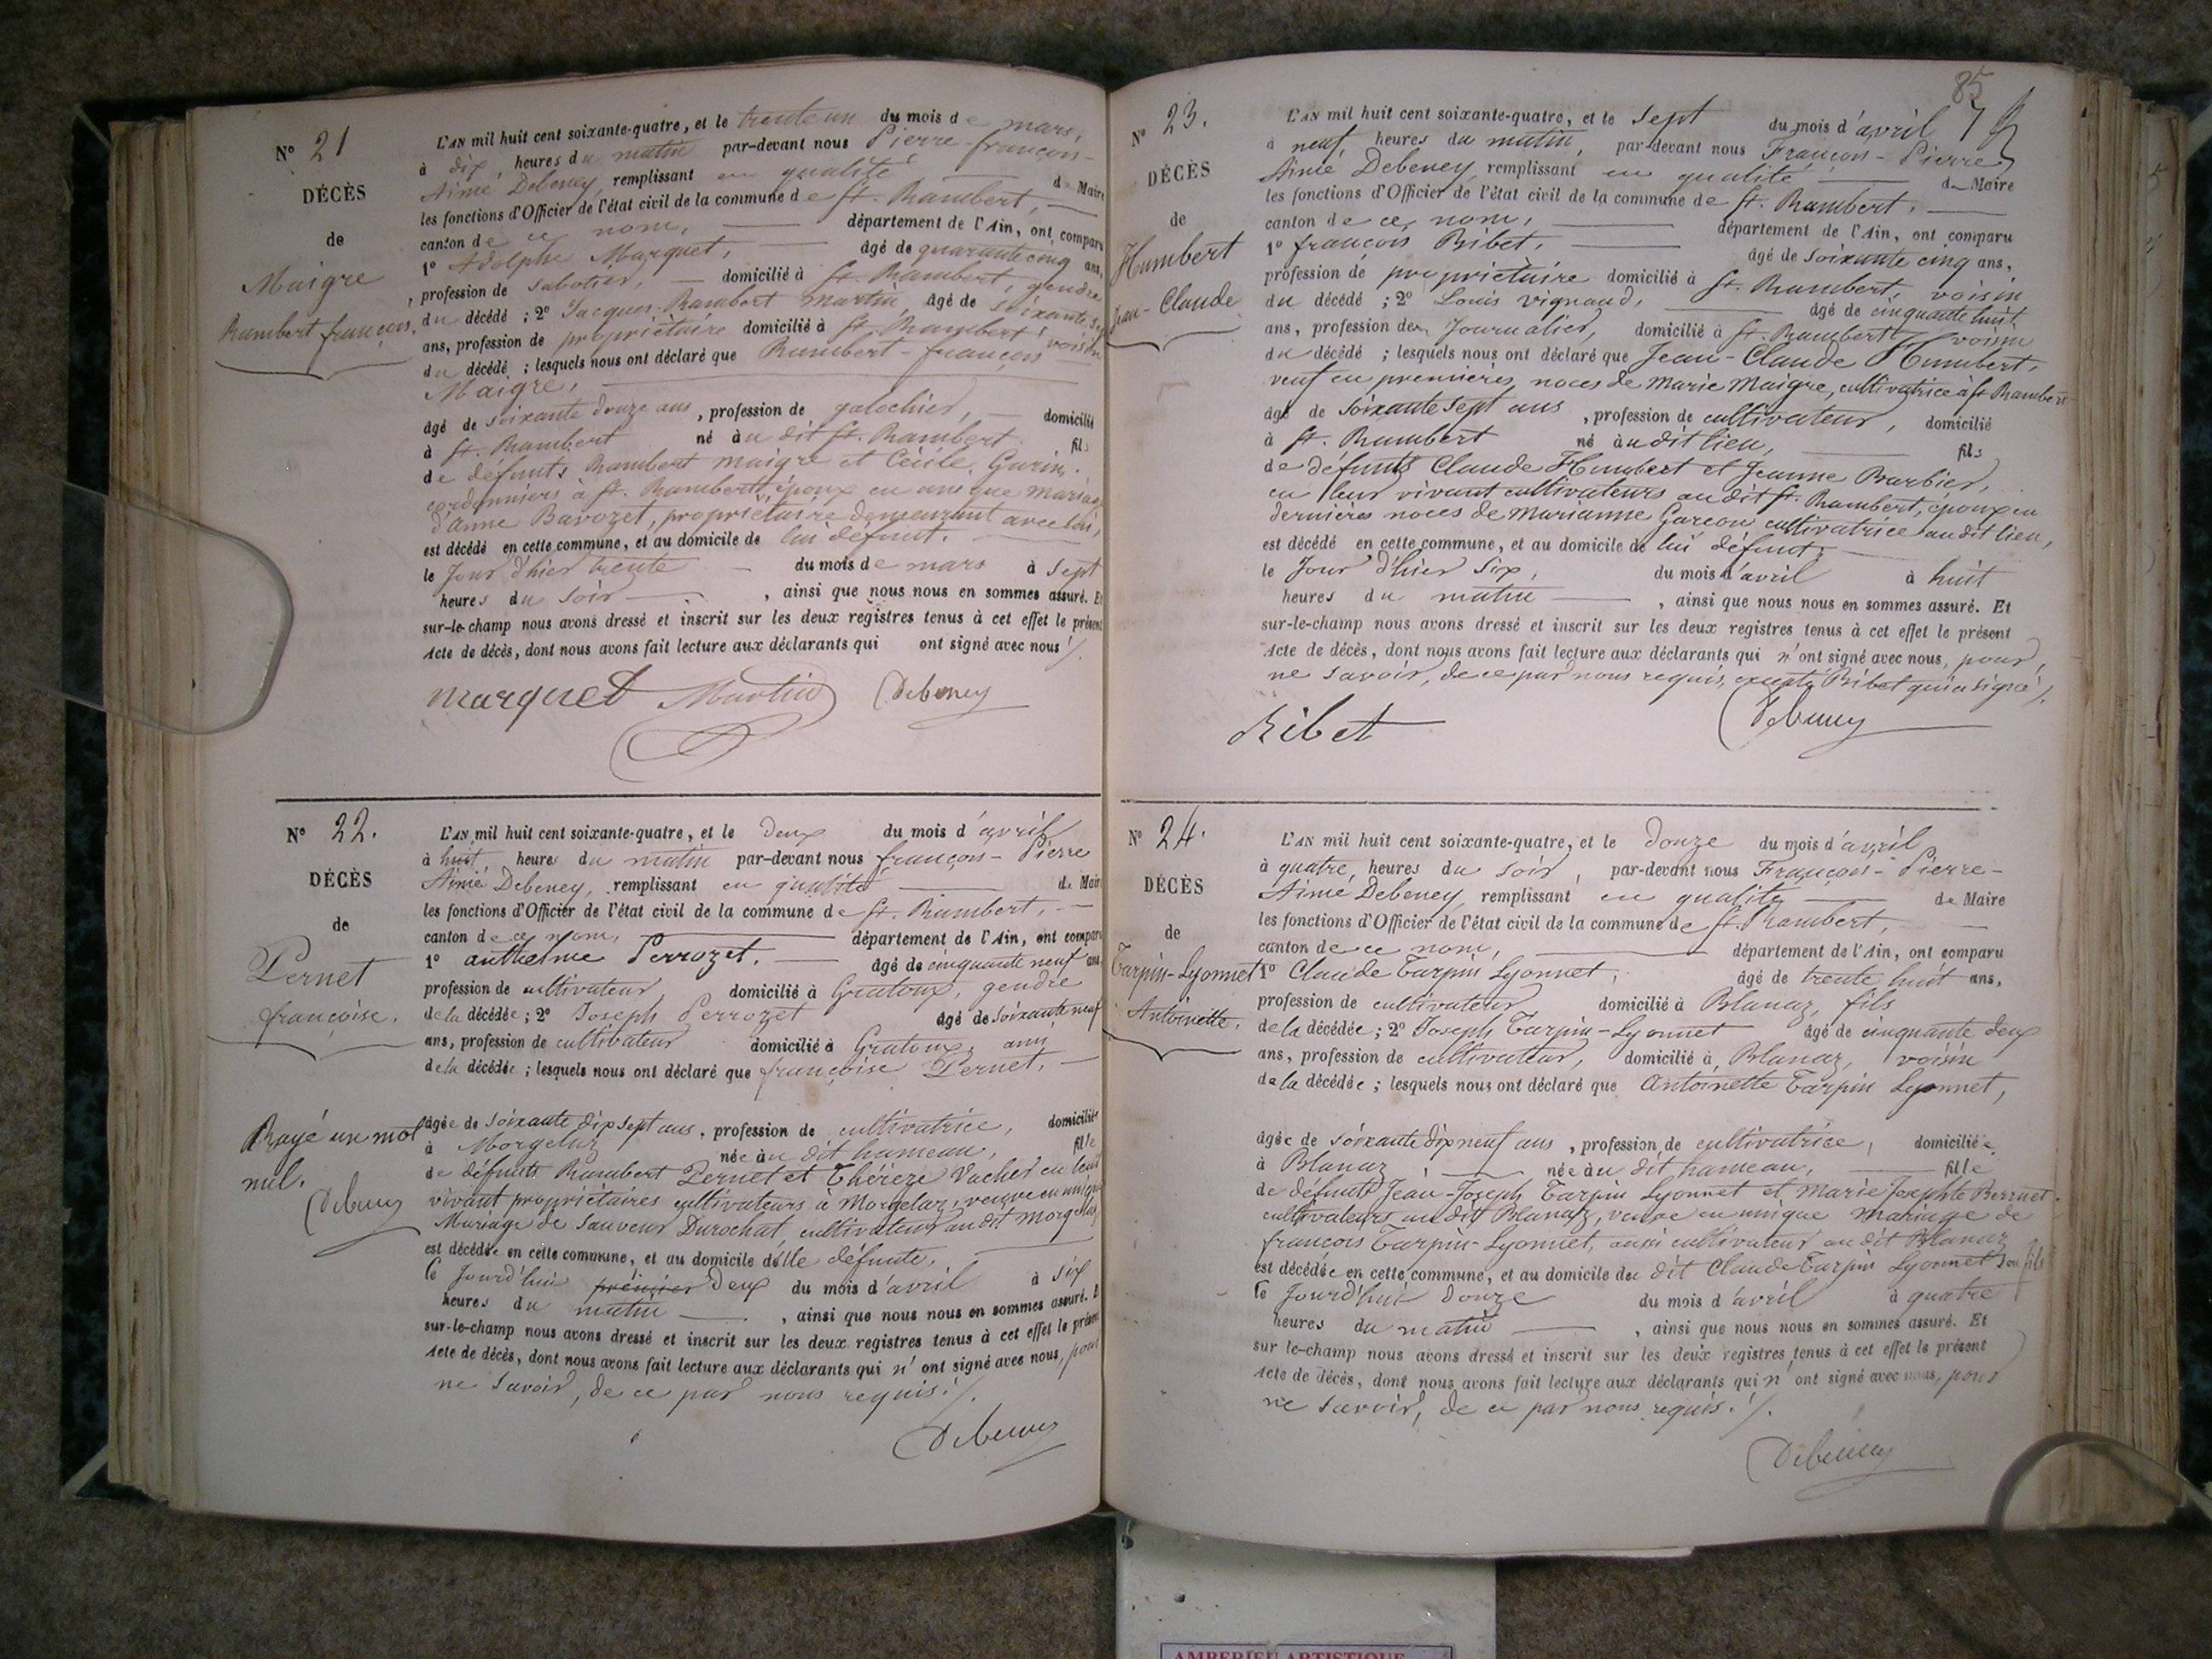 N° 21
DÉCÈS
de
Maigre
Rambert françois.
L'AN mil huit cent soixante-quatre, et le trente un du mois de mars,
à dix heures du matin par-devant nous Pierre-françois-
Aimé Debeney, remplissant en qualité de Maire
les fonctions d'Officier de l'état civil de la commune de St. Rambert,
canton de ce nom, département de l'Ain, ont comparu
1° Adolphe Marquet, âgé de quarante cinq ans,
profession de sabotier, domicilié à St. Rambert, gendre
du décédé ; 2° Jacques Rambert Martin, âgé de soixante
ans, profession de propriétaire domicilié à St. Rambert, voisin
du décédé ; lesquels nous ont déclaré que Rambert-françois
Maigre,
âgé de soixante douze ans, profession de galochier, domicilié
à St. Rambert né au dit St. Rambert fils
de défunts Rambert Maigre et Cécile Gurin,
cordonniers à St. Rambert, époux en unique mariage
d'Anne Bavozet, propriétaire demeurant avec lui,
est décédé en cette commune, et au domicile de lui défunt.
le Jour d'hier trente du mois de mars à sept
heures du soir, ainsi que nous nous en sommes assuré. Et
sur-le-champ nous avons dressé et inscrit sur les deux registres tenus à cet effet le présent
Acte de décès, dont nous avons fait lecture aux déclarants qui ont signé avec nous ./.
Marquet Martin Debeney
N° 22.
DÉCÈS
de
Pernet
françoise.
Rayé un mot
nul.
Debeney
L'AN mil huit cent soixante-quatre, et le deux du mois d'avril
à huit heures du matin par-devant nous françois-Pierre
Aimé Debeney, remplissant en qualité de Maire
les fonctions d'Officier de l'état civil de la commune de St. Rambert,
canton de ce nom, département de l'Ain, ont comparu
1° anthelme Perrozet, âgé de cinquante neuf ans,
profession de cultivateur domicilié à Gratoux, gendre
de la décédée ; 2° Joseph Perrozet âgé de soixante neuf
ans, profession de cultivateur domicilié à Gratoux, ami
de la décédée ; lesquels nous ont déclaré que françoise Pernet,
âgée de soixante dix sept ans, profession de cultivatrice, domiciliée
à Morgelaz née au dit hameau, fille
de défunts Rambert Pernet et Thérèze Vacher en leur
vivant propriétaires cultivateurs à Morgelaz, veuve en unique
Mariage de Sauveur Durochat, cultivateur au dit Morgelaz,
est décédée en cette commune, et au domicile d'elle défunte.
le Jourd'hui premier deux du mois d'avril à six
heures du matin, ainsi que nous nous en sommes assuré. Et
sur-le-champ nous avons dressé et inscrit sur les deux registres tenus à cet effet le présent
Acte de décès, dont nous avons fait lecture aux déclarants qui n'ont signé avec nous, pour
ne savoir, de ce par nous requis ./.
Debeney
85
N° 23.
DÉCÈS
de
Humbert
Jean-Claude
L'AN mil huit cent soixante-quatre, et le sept du mois d'avril
à neuf heures du matin, par-devant nous François-Pierre
Aimé Debeney, remplissant en qualité de Maire
les fonctions d'Officier de l'état civil de la commune de St. Rambert,
canton de ce nom, département de l'Ain, ont comparu
1° françois Ribet, âgé de soixante cinq ans,
profession de propriétaire domicilié à St. Rambert, voisin
du décédé ; 2° Louis Vignaud, âgé de cinquante huit
ans, profession de Journalier, domicilié à St. Rambert, voisin
du décédé ; lesquels nous ont déclaré que Jean-Claude Humbert,
veuf en premières noces de Marie Maigre, cultivatrice à St Rambert
âgé de soixante sept ans, profession de cultivateur, domicilié
à St. Rambert né au dit lieu, fils
de défunts Claude Humbert et Jeanne Barbier,
en leur vivant cultivateurs au dit St. Rambert, époux en
dernières noces de Marianne Garçon cultivatrice au dit lieu,
est décédé en cette commune, et au domicile de lui défunt,
le Jour d'hier six, du mois d'avril à huit
heures du matin, ainsi que nous nous en sommes assuré. Et
sur-le-champ nous avons dressé et inscrit sur les deux registres tenus à cet effet le présent
Acte de décès, dont nous avons fait lecture aux déclarants qui n'ont signé avec nous, pour
ne savoir, de ce par nous requis, excepté Ribet qui a signé ./.
Ribet Debeney
N° 24.
DÉCÈS
de
Tarpin-Lyonnet
Antoinette.
L'AN mil huit cent soixante-quatre, et le douze du mois d'avril
à quatre heures du soir, par-devant nous François-Pierre-
Aimé Debeney, remplissant en qualité de Maire
les fonctions d'Officier de l'état civil de la commune de St. Rambert,
canton de ce nom, département de l'Ain, ont comparu
1° Claude Tarpin Lyonnet, âgé de trente huit ans,
profession de cultivateur domicilié à Blanaz, fils
de la décédée ; 2° Joseph Tarpin-Lyonnet âgé de cinquante deux
ans, profession de cultivateur, domicilié à Blanaz, voisin
de la décédée ; lesquels nous ont déclaré que Antoinette Tarpin Lyonnet,
âgée de soixante dix neuf ans, profession de cultivatrice, domiciliée
à Blanaz née au dit hameau, fille
de défunts Jean-Joseph Tarpin Lyonnet et Marie Josephte
cultivateurs au dit Blanaz, veuve en unique mariage de
françois Tarpin-Lyonnet, aussi cultivateur au dit Blanaz
est décédée en cette commune, et au domicile du dit Claude Tarpin Lyonnet son fils
le Jourd'hui douze du mois d'avril à quatre
heures du matin, ainsi que nous nous en sommes assuré. Et
sur le-champ nous avons dressé et inscrit sur les deux registres tenus à cet effet le présent
Acte de décès, dont nous avons fait lecture aux déclarants qui n'ont signé avec nous, pour
ne savoir, de ce par nous requis ./.
Debeney
AMBERIEU ARTISTIQUE